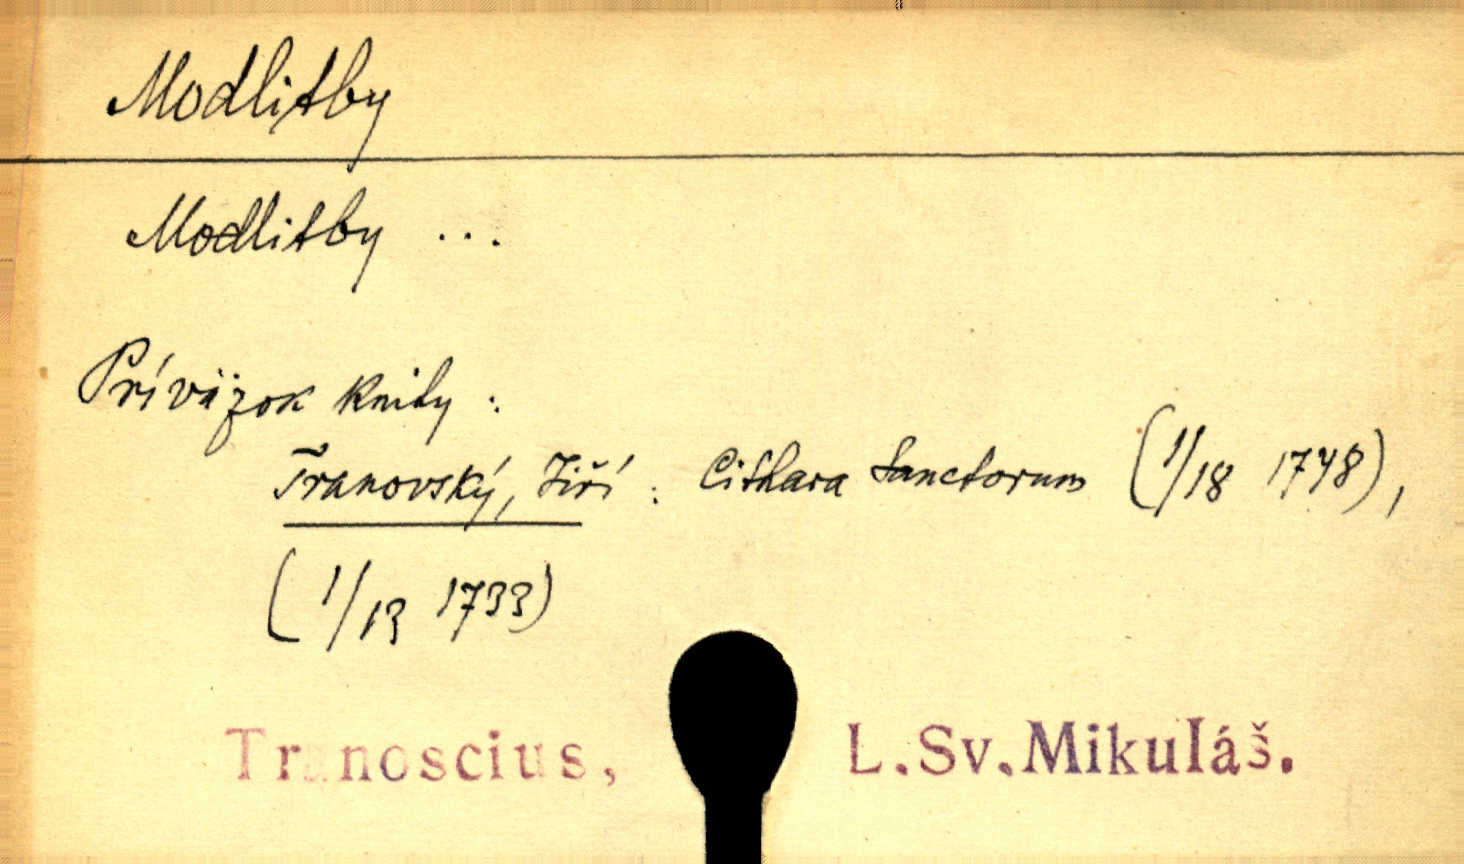 Modlitby
Modlitby ...
Príväzok knihy :
Tranovský, Jiří : Cithara Sanctorum (1/18 1748),
(1/13 1733)
Tranoscius, L.Sv.Mikuláš.